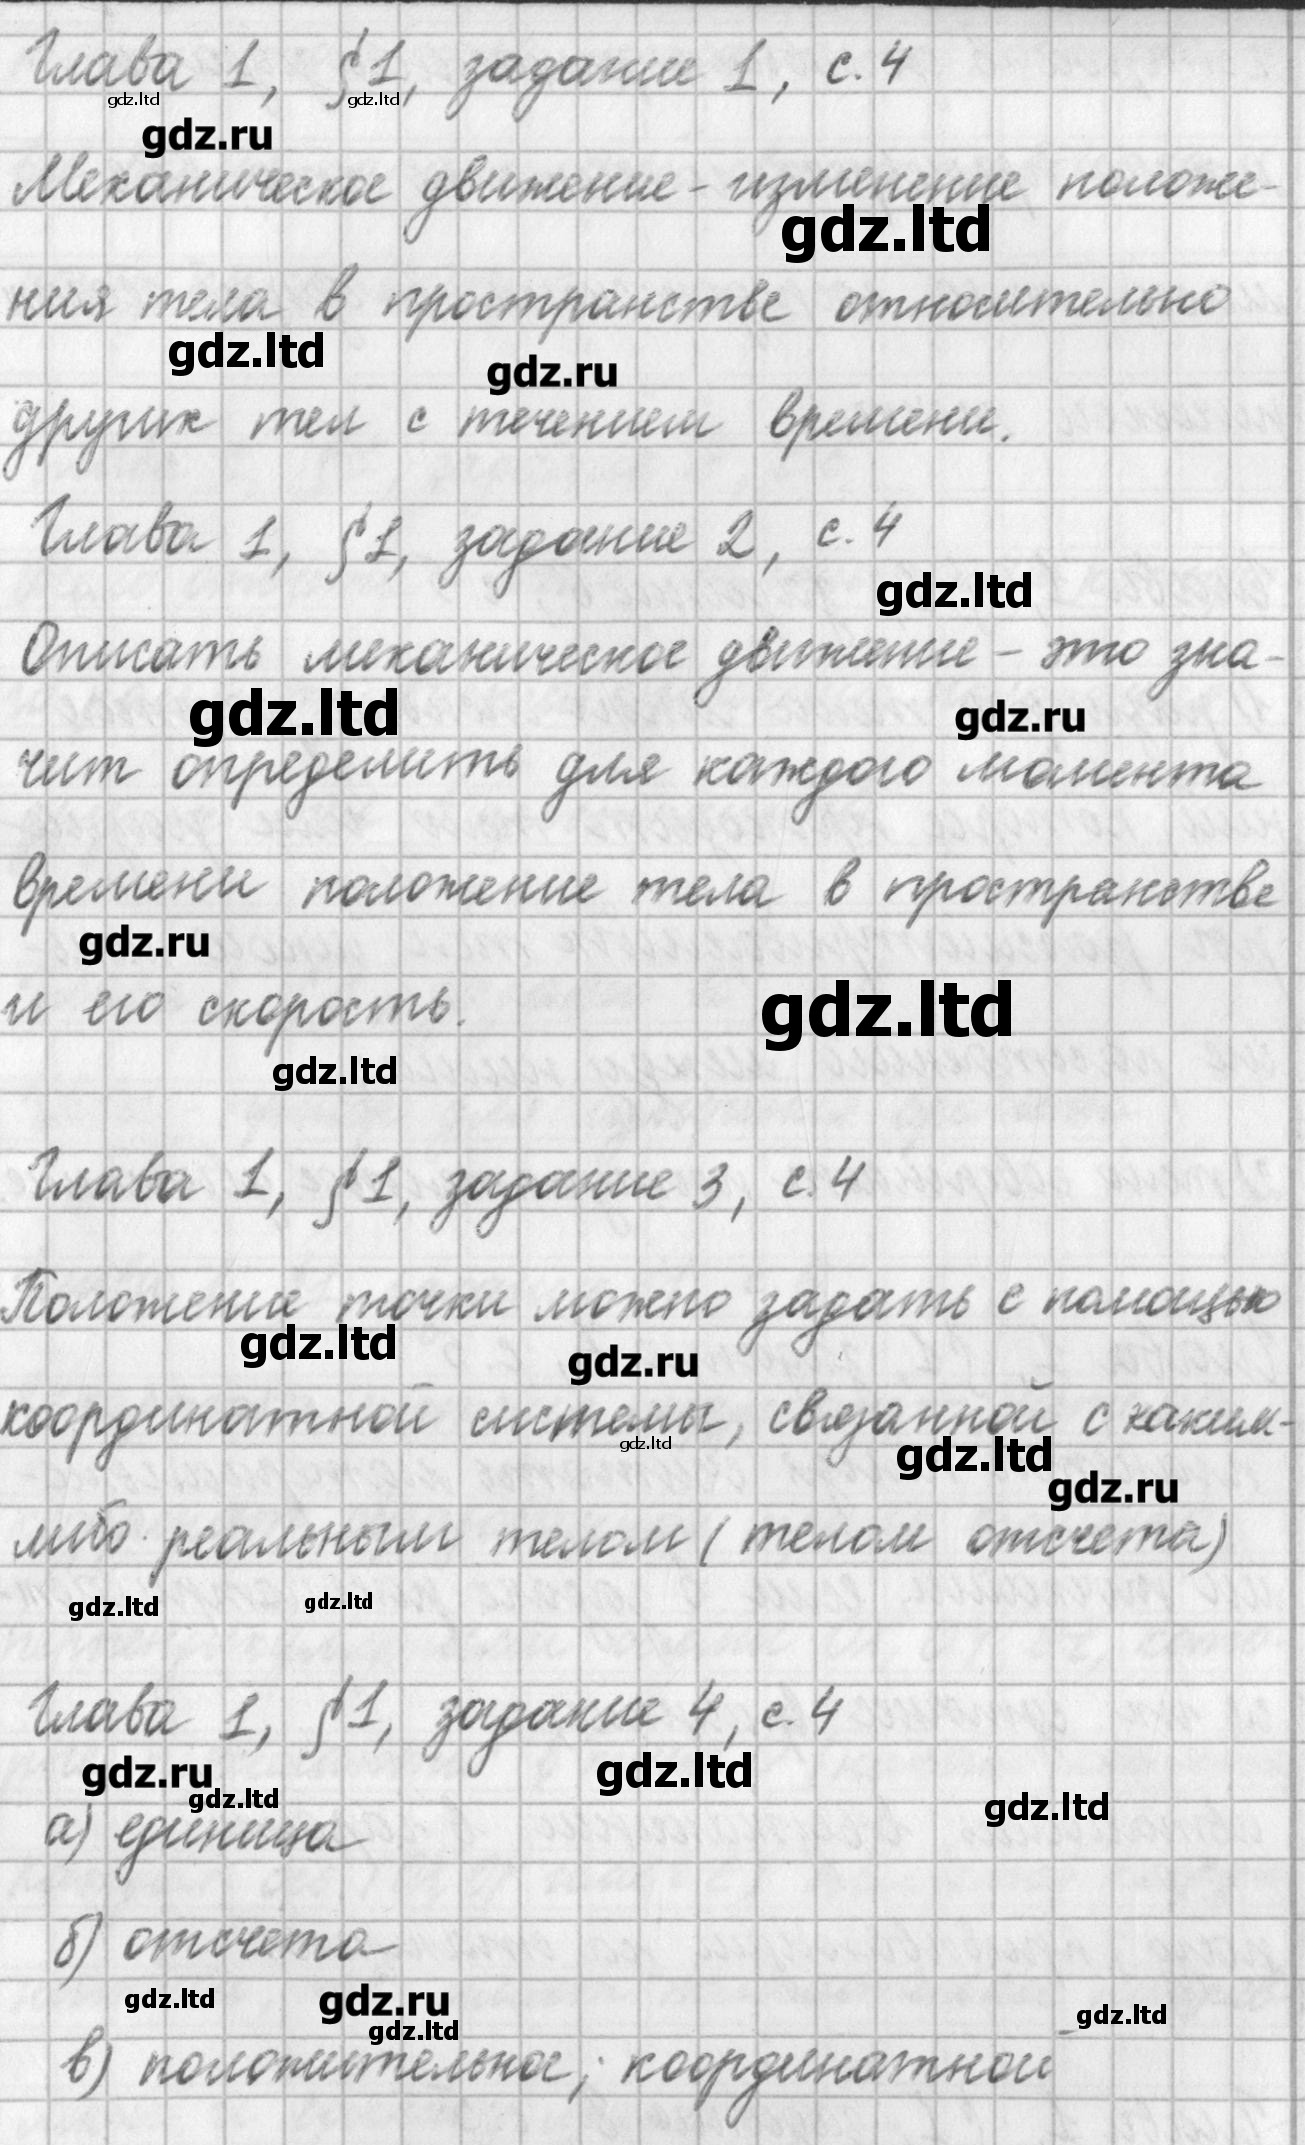 Глава 1, §1, задание 1, с. 4
gdz.ltd gdz.ltd
gdz.ru
Механическое движение - изменение положе-
gdz.ltd
ния тела в пространстве относительно
gdz.ltd gdz.ru
других тел с течением времени.
Глава 1, §1, задание 2, с. 4
gdz.ltd
Описать механическое движение - это зна-
gdz.ltd gdz.ru
чит определить для каждого момента
времени положение тела в пространстве
gdz.ru
и его скорость.
gdz.ltd
gdz.ltd
Глава 1, §1, задание 3, с. 4
Положение точки можно задать с помощью
gdz.ltd gdz.ru
координатной системы, связанной с каким-
gdz.ltd gdz.ltd
gdz.ru
либо реальным телом (телом отсчета)
gdz.ltd gdz.ltd
Глава 1, §1, задание 4, с. 4
gdz.ru gdz.ltd
gdz.ltd gdz.ltd
а) единица
б) отсчета
gdz.ltd gdz.ru gdz.ltd
gdz.ltd
в) положительное; координатной